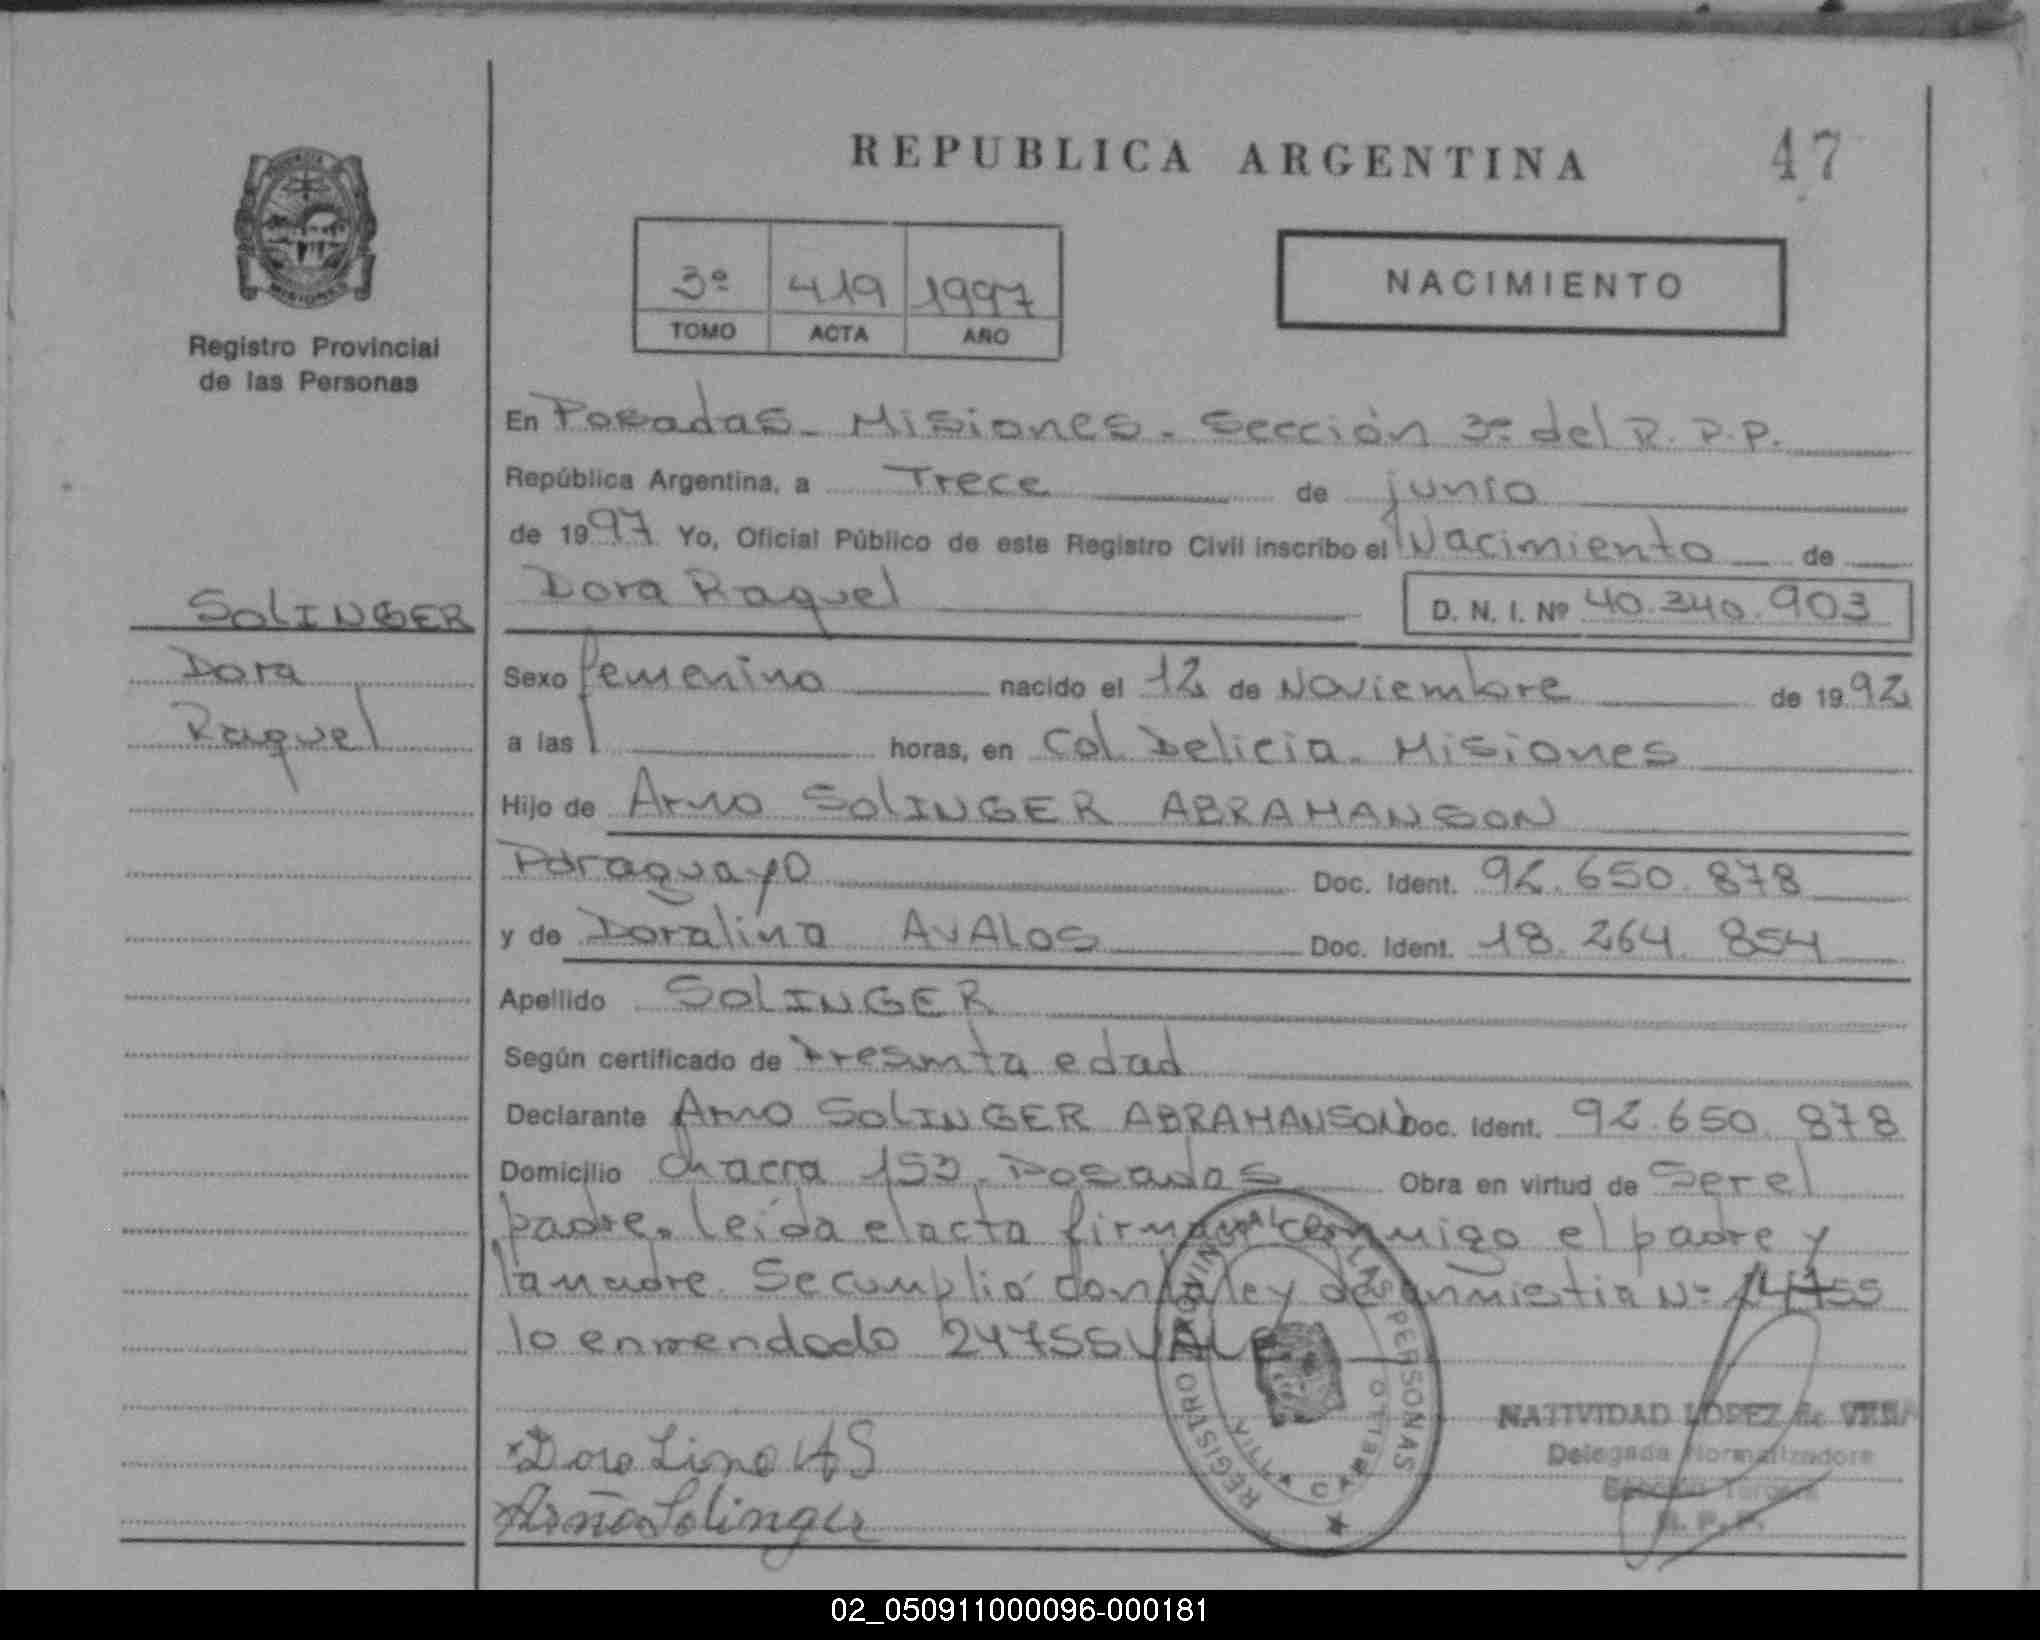 REPUBLICA ARGENTINA
47
3º 419 1997
TOMO ACTA AÑO
NACIMIENTO
MISIONES
Registro Provincial
de las Personas
SOLINGER
Dora
Raquel
En Posadas - Misiones - Sección 3º del R.P.P.
República Argentina, a Trece de junio
de 1997 Yo, Oficial Público de este Registro Civil inscribo el Nacimiento de
Dora Raquel D. N. I. Nº 40.340.903
Sexo femenino nacido el 12 de Noviembre de 1992
a las horas, en Col. Delicia - Misiones
Hijo de Arno SOLINGER ABRAHANSON
Paraguayo Doc. Ident. 92.650.878
y de Doralina AVALOS Doc. Ident. 18.264.854
Apellido SOLINGER
Según certificado de Presunta edad
Declarante Arno SOLINGER ABRAHANSON Doc. Ident. 92.650.878
Domicilio Chacra 153 - Posadas Obra en virtud de Ser el
padre. Leída el acta firman conmigo el padre y
la madre. Se cumplió con la ley de amnistia Nº 24755
lo enmendado 24755 VALE
REGISTRO PROVINCIAL DE LAS PERSONAS
NATIVIDAD LOPEZ de VERA
Delegada Normalizadora
Sección Tercera
R. P. P.
Dora Lina AS
Arno Solinger
02_050911000096-000181